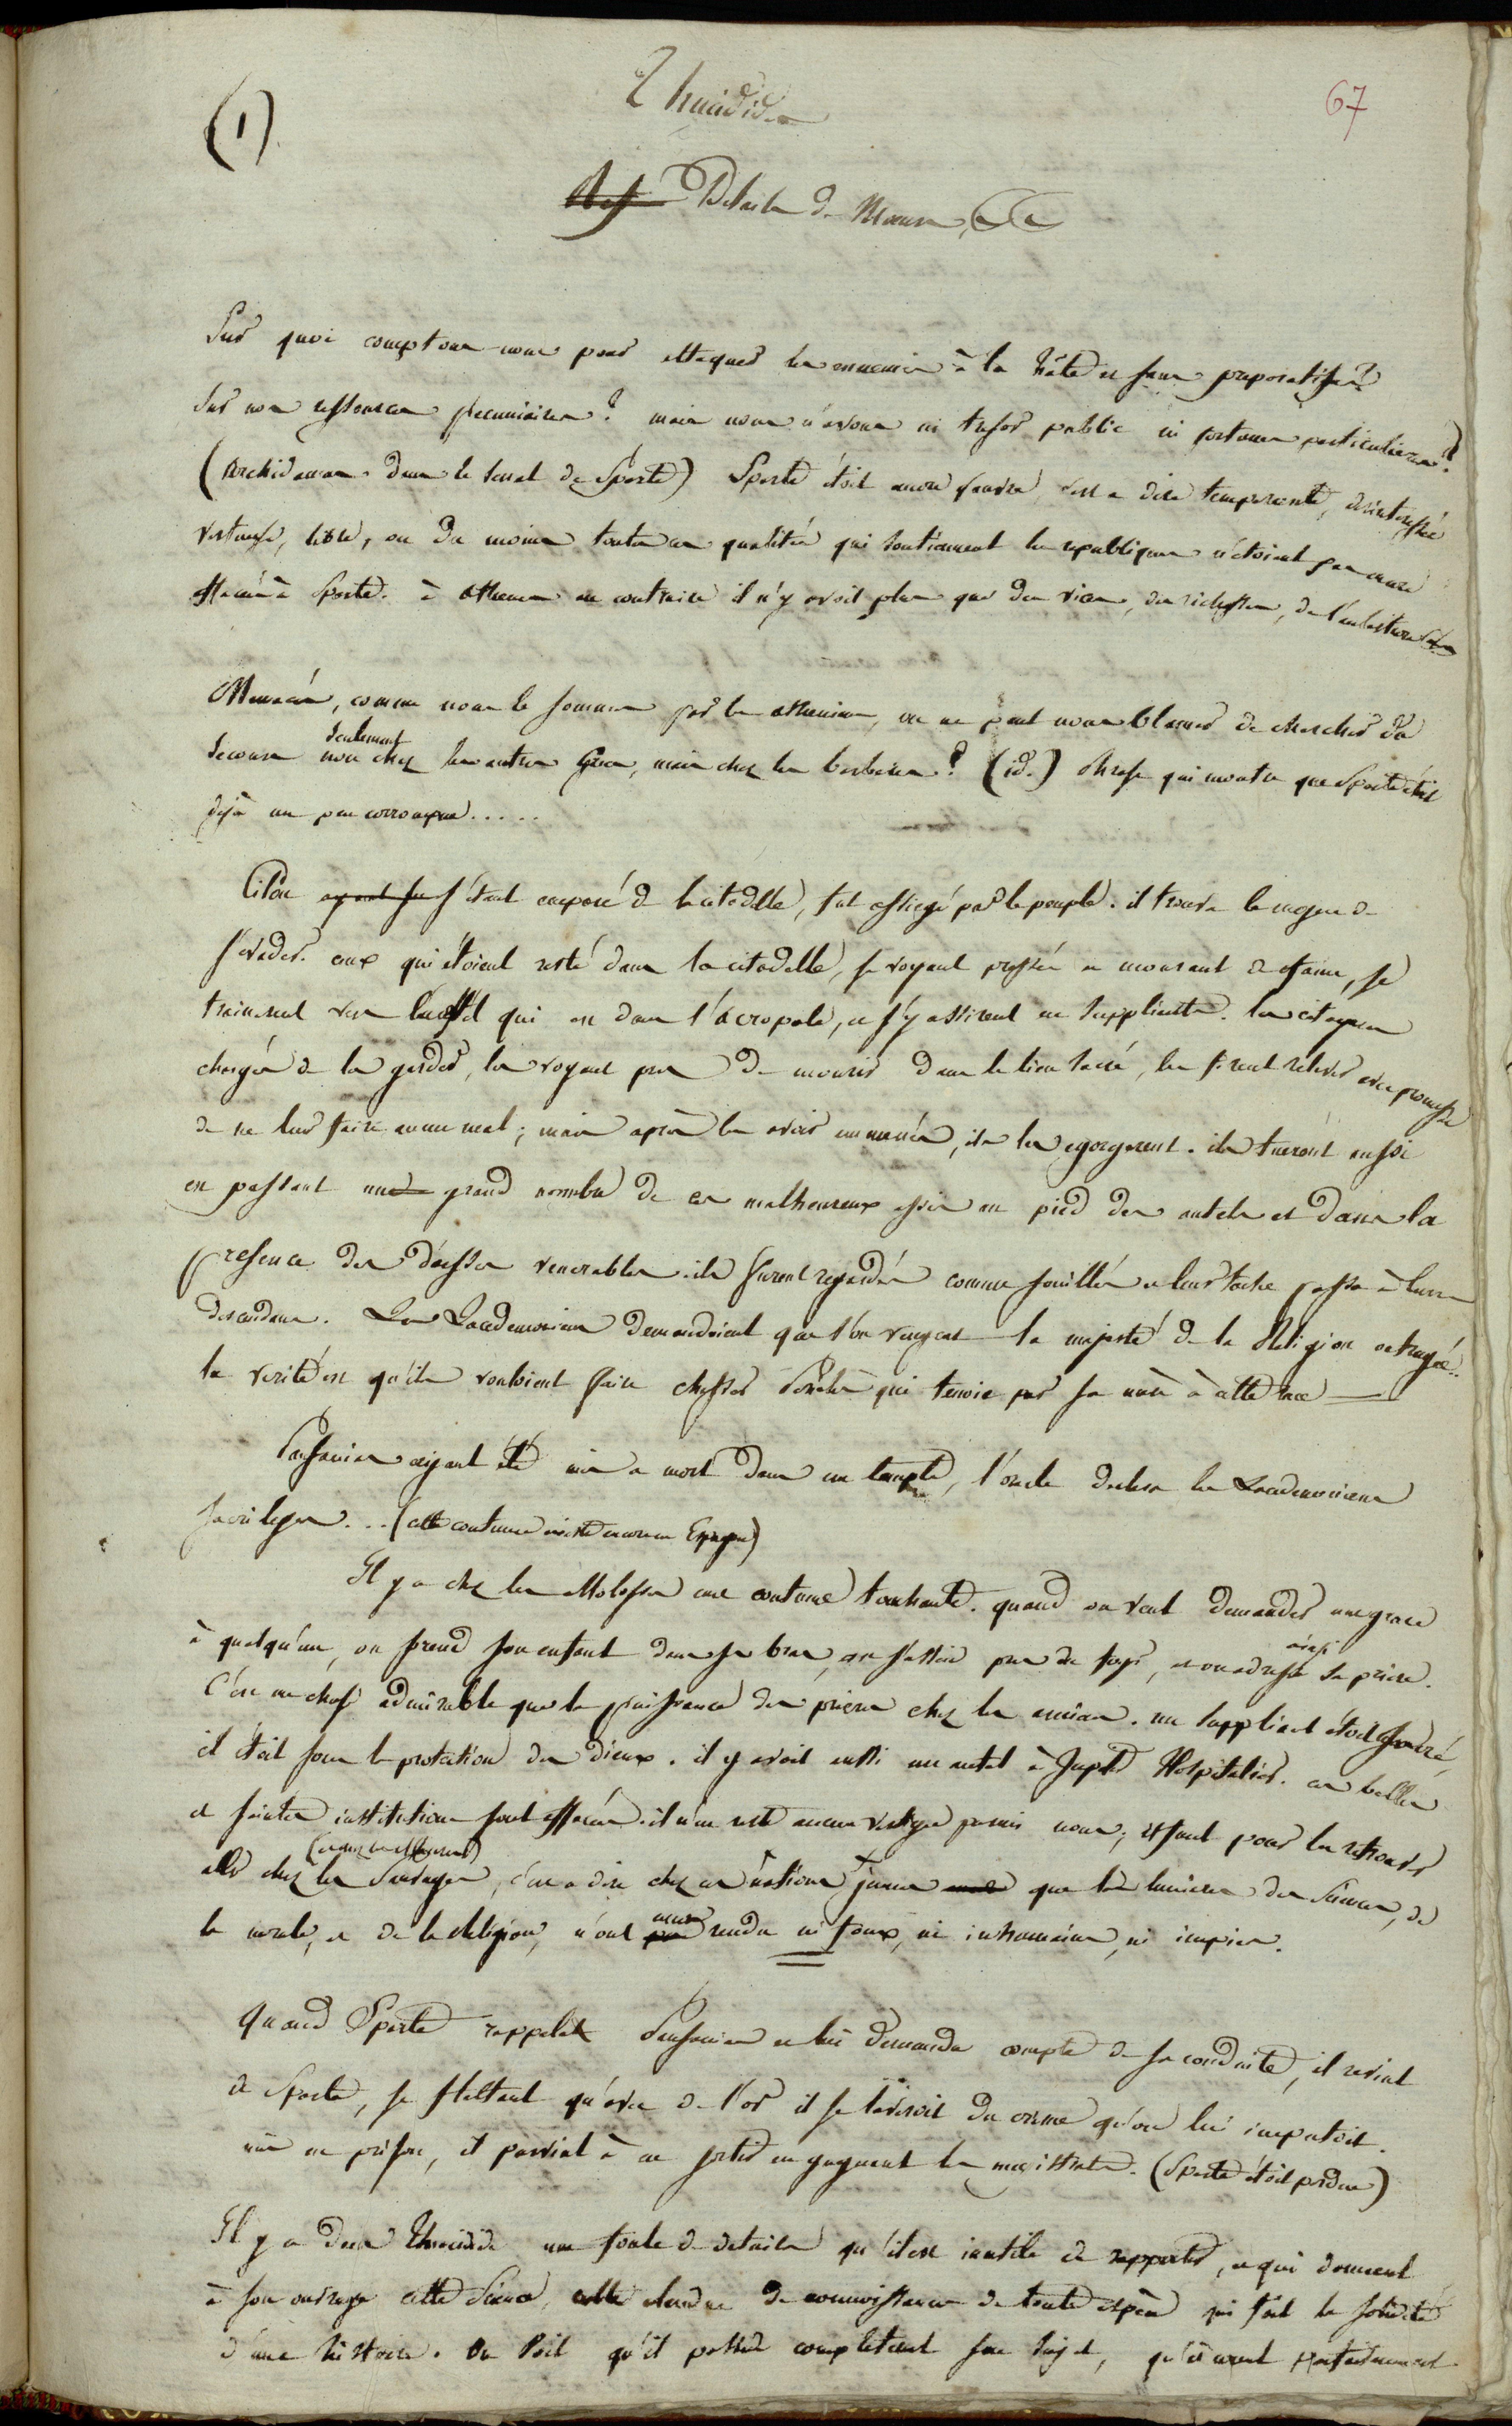 (1)
Thucidide
67
Details de Moeurs, &c
Sur quoi comptons-nous pour attaquer les ennemis à la hâte et sans preparatifs?
Sur nos ressources pecuniaires? mais nous n'avons ni tresor public ni fortunes particulieres!
(Archidamas dans le senat de Sparte) Sparte étoit encore pauvre, c'est a dire temperante, desinteressée
vertueuse, libre, ou du moins toutes ces qualités qui soutiennent les republiques n'étoient pas encore
effacées à Sparte. à Athenes au contraire il n'y avoit plus que des vices, des richesses, de l'ambition
Menacés, comme nous le sommes par les atheniens, on ne peut nous blamer de chercher du
secours non seulement chez les autres Grecs, mais chez les barbares? (id.) Phrase qui montre que Sparte étoit
dejà un peu corrompue.....
Cilon s'étant emparé de la citadelle, fut assiegé par le peuple. il trouva le moyen de
s'evader. ceux qui étoient resté dans la citadelle, se voyant pressés et mourant de faim, se
trainerent vers l'autel qui est dans l'acropole, et s'y assirent en suppliants. les citoyens
chargés de la garder, les voyant pres de mourir dans le lieu sacré, les firent relever avec promesse
de ne leur faire aucun mal; mais après les avoir emmenés, ils les egorgerent. ils tuerent aussi
en passant un grand nombre de ces malheureux assis au pied des autels et dans la
presence des déesses venerables. ils furent regardés comme souillés et leur tache passa à leurs
descendans. Les Lacedemoniens demandoient que l'on vengeat la majesté de la Religion outragée..
la verité est qu'ils vouloient faire chasser Periclès qui tenoit par sa mère à cette race —
Pausanias ayant été mis a mort dans un temple, l'oracle declara les Lacedemoniens
sacrileges... (cette coutume existe encore en Espagne)
Il y a chez les Molosses une coutume touchante. quand on veut demander une grace
à quelqu'un, on prend son enfant dans ses bras, on s'assied pres du foyer, et on adresse ainsi sa priere.
C'est une chose admirable que la puissance des prieres chez les anciens. un suppliant étoit sacré,
il étoit sous la protection des dieux. il y avoit aussi un autel à Jupiter Hospitalier. ces belles
et saintes institutions sont effacées. il n'en reste aucun vestige parmi nous; il faut pour les retrouver
aller chez les Sauvages, c'est a dire chez ces nations jeunes que les lumieres des Sciences, de
la morale, et de la Religion, n'ont encore rendu ni faux, ni inhumains, ni impies.
Quand Sparte rappela Pausanias et lui demanda compte de sa conduite, il revint
à Sparte, se flattant qu'avec de l'or il se laveroit du crime qu'on lui imputoit.
mis en prison, il parvint à en sortir en gagnant les magistrats. (Sparte étoit perdue)
Il y a dans Thucidide une foule de details qu'il est inutile de rapporter, et qui donnent
à son ouvrage cette Science, cette étendue de connoissances de toute espèce qui fait la solidité
d'une histoire. On voit qu'il possede completement son sujet, qu'il